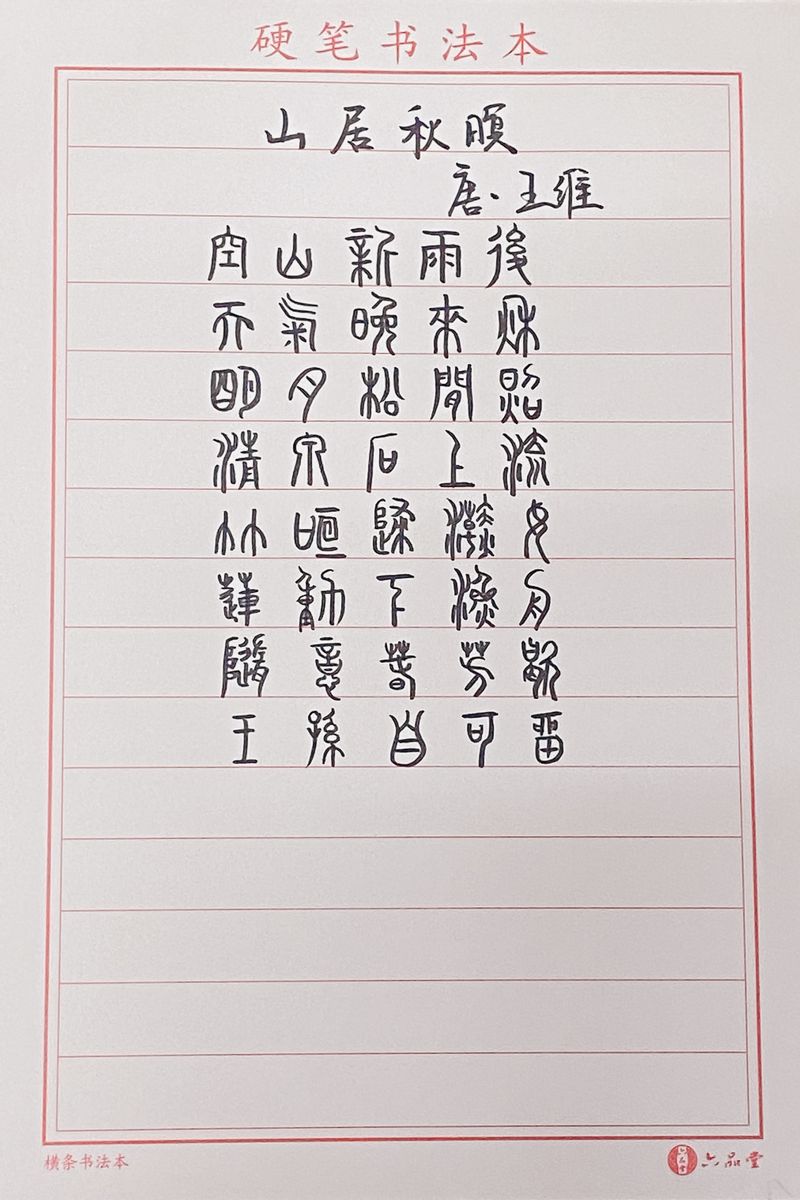 硬笔书法本
山居秋暝
唐·王維
空山新雨後
天氣晚來秋
明月松間照
清泉石上流
竹喧歸浣女
蓮動下漁舟
隨意春芳歇
王孫自可留
横条书法本
六品堂